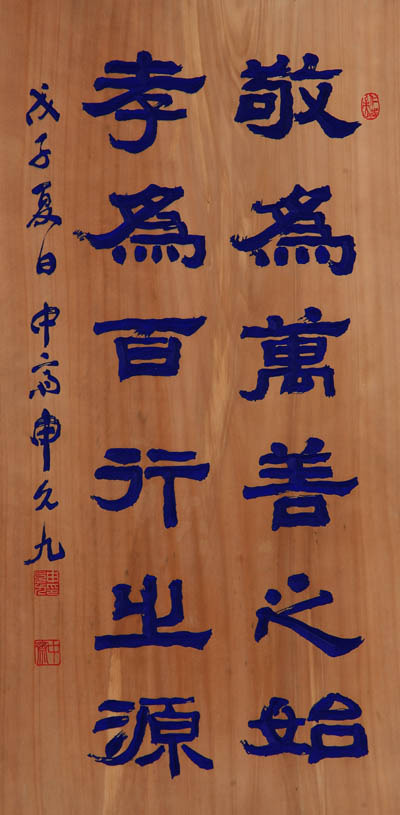 敬為萬善之始
孝為百行之源
戊子夏日 中齋申允九